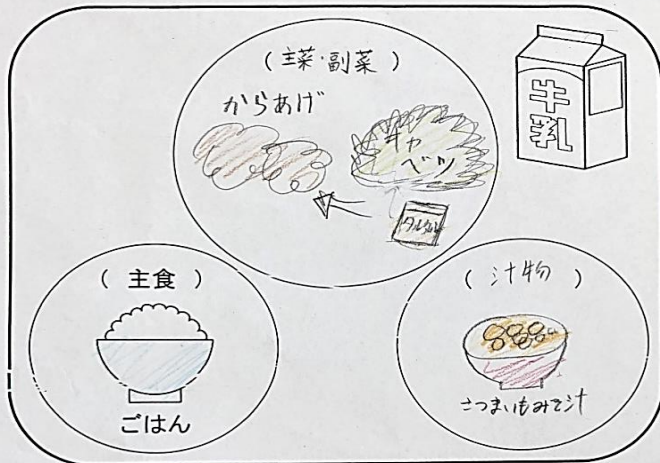 (主菜・副菜)
からあげ
キャ
ベツ
タルタル
牛乳
(主食)
ごはん
(汁物)
さつまいもみそ汁